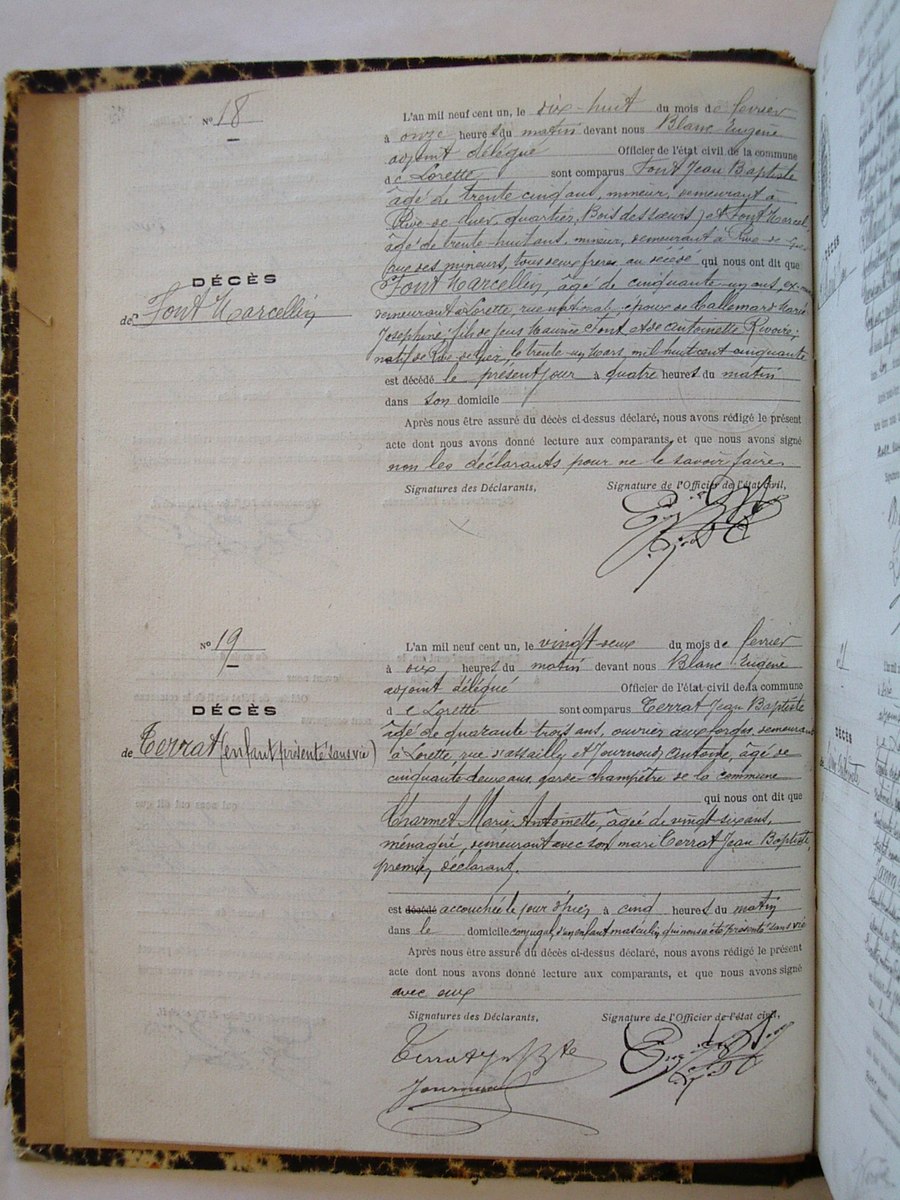 N° 18
DÉCÈS
de Font Marcellin
L'an mil neuf cent un, le dix-huit du mois de février
à onze heures du matin devant nous Blanc Eugène
adjoint délégué Officier de l'état civil de la commune
de Lorette sont comparus Font Jean Baptiste
âgé de trente cinq ans, mineur, demeurant à
Rive de Gier, quartier, Bois des sœurs, et Font Marcel,
âgé de trente-huit ans, mineur, demeurant à Rive-de-Gier
rue des mineurs, tous deux frères au décédé qui nous ont dit que
Font Marcellin, âgé de cinquante-un ans, ex-
demeurant à Lorette, rue nationale, époux de Mallemard Marie
Joséphine; fils de feus Maurice Font et de Antoinette Rivoire;
natif de Rive de Gier, le trente-un Mars, mil huit cent cinquante
est décédé le présent jour à quatre heures du matin
dans son domicile
Après nous être assuré du décès ci-dessus déclaré, nous avons rédigé le présent
acte dont nous avons donné lecture aux comparants, et que nous avons signé
non les déclarants pour ne le savoir faire.
Signatures des Déclarants, Signature de l'Officier de l'état civil,
N° 19
DÉCÈS
de Terrat (enfant présenté sans vie)
L'an mil neuf cent un, le vingt-deux du mois de février
à dix heures du matin devant nous Blanc Eugène
adjoint délégué Officier de l'état civil de la commune
de Lorette sont comparus Terrat Jean Baptiste
âgé de quarante trois ans, ouvrier aux forges, demeurant
à Lorette, rue d'assailly et Journoud Antoine, âgé de
cinquante deux ans, garde-champêtre de la commune
qui nous ont dit que
Charmet Marie Antoinette, âgée de vingt-six ans,
ménagère, demeurant avec son mari Terrat Jean Baptiste,
premier déclarant,
est décédé accouchée le jour d'hier à cinq heures du matin
dans le domicile conjugal, d'un enfant masculin qui nous a été présenté sans vie
Après nous être assuré du décès ci-dessus déclaré, nous avons rédigé le présent
acte dont nous avons donné lecture aux comparants, et que nous avons signé
avec eux
Signatures des Déclarants, Signature de l'Officier de l'état civil,
Terrat Jn Bte
Journoud